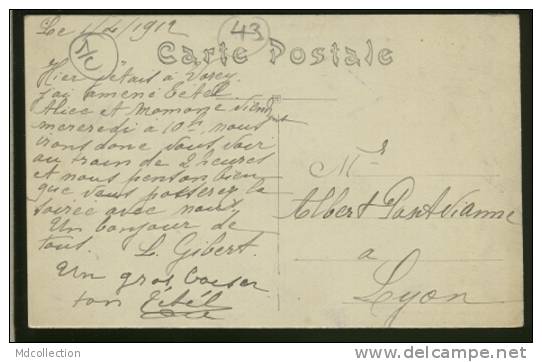 Le 1/4/1912
1/C
43
Carte Postale
Hier j'étais à Vorey
j'ai amené Bébél
Alice et Momone viendront
mercredi à 10h nous
irons donc vous voir
au train de 2 heures
et nous pensons bien
que vous passerez la
soirée avec nous
Un bonjour de
tous. L. Gibert.
Un gros baiser
ton Bébél
Mr
Albert Pont Vianne
a
Lyon
Mdcollection
http://www.delcampe.net